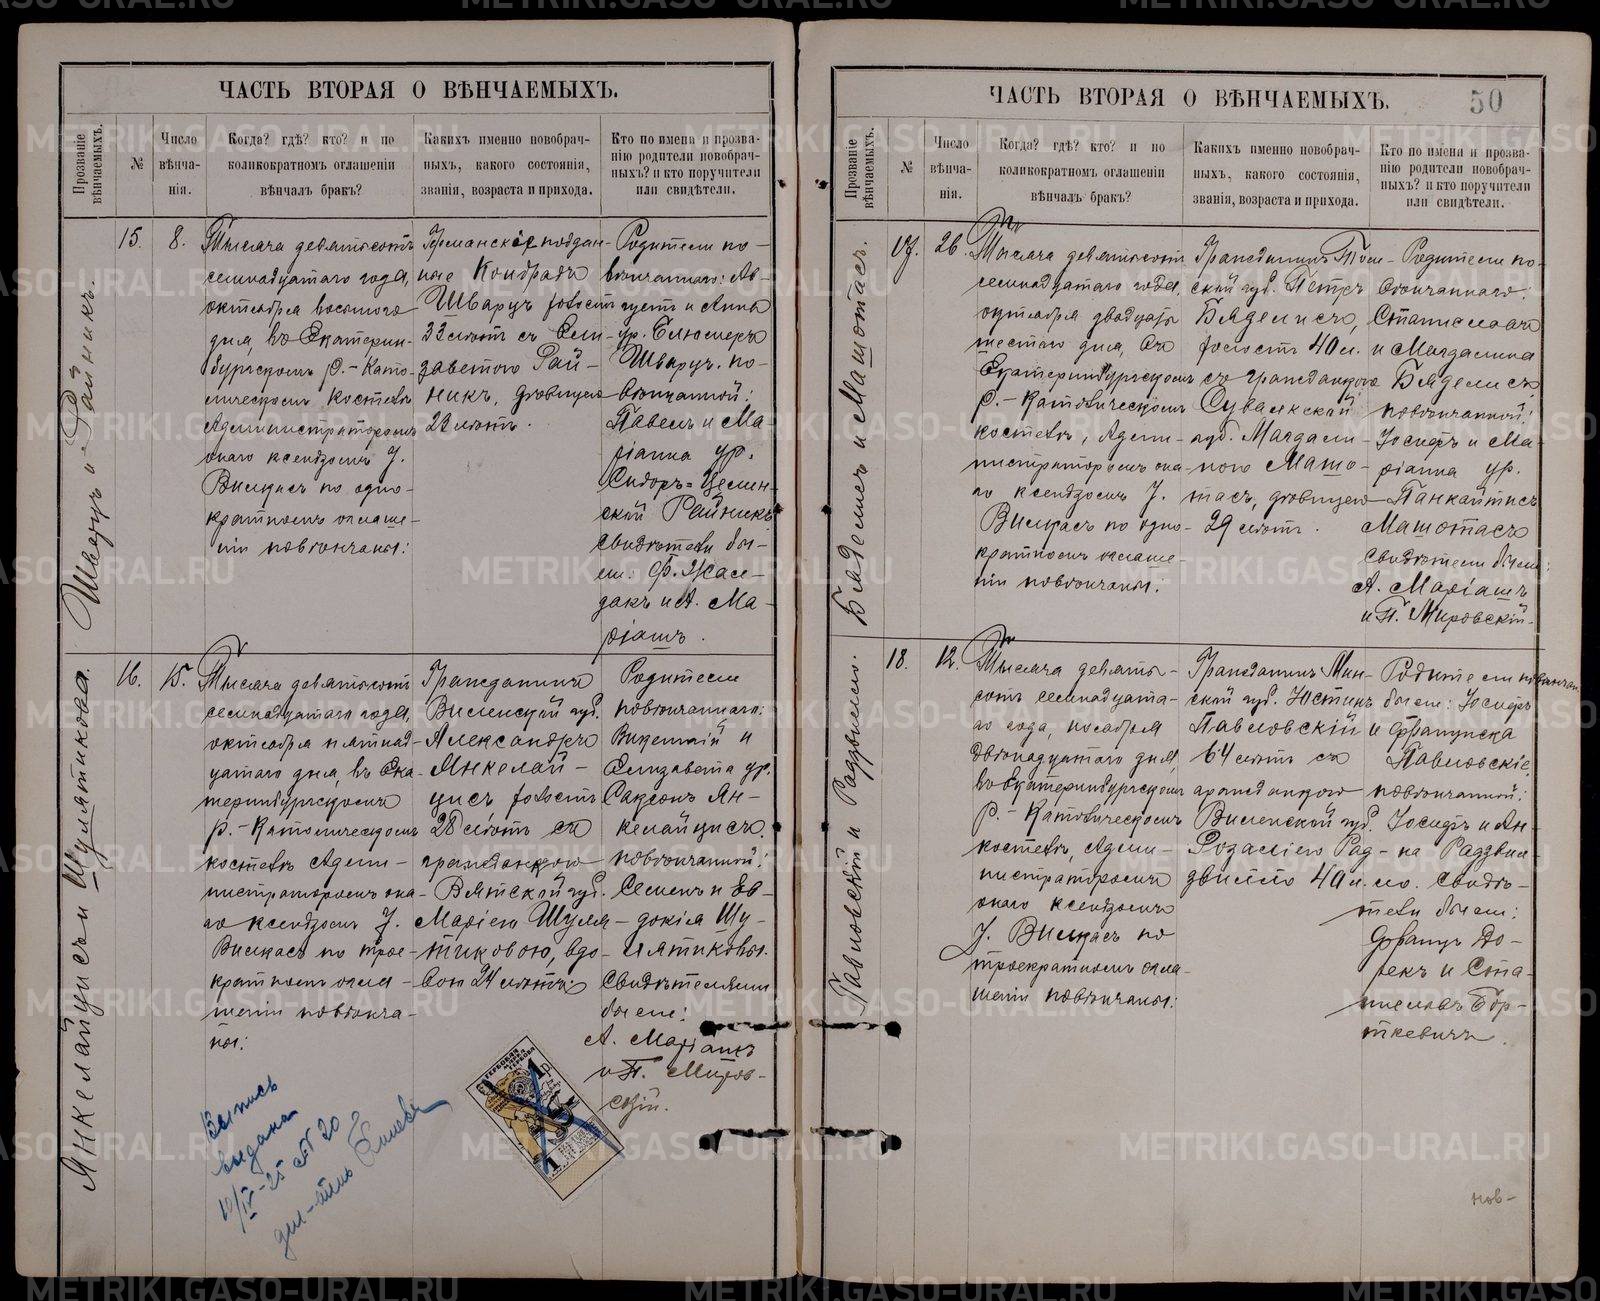 ЧАСТЬ ВТОРАЯ О ВѢНЧАЕМЫХЪ.
Прозваніе вѣнчаемыхъ.
№
Число вѣнча-
нія.
Когда? гдѣ? кто? и по
коликократномъ оглашеніи
вѣнчалъ бракъ?
Какихъ именно новобрач-
ныхъ, какого состоянія,
званія, возраста и прихода.
Кто по имени и прозва-
нію родители новобрач-
ныхъ? и кто поручители
или свидѣтели.
Шварцъ и Райникъ.
15.
8.
Тысяча девятьсотъ
семнадцатаго года,
октября восьмого
дня, въ Екатерин-
бургскомъ Р.-Като-
лическомъ костелѣ
Администраторомъ
онаго ксендзомъ І.
Вилкасъ по одно-
кратномъ оглаше-
ніи повѣнчаны:
Германскіе поддан-
ные Кондрадъ
Шварцъ холостъ
33 лѣтъ съ Ели-
заветою Рай-
никъ, дѣвицею
22 лѣтъ.
Родители по-
вѣнчаннаго: Ав-
густъ и Анна
ур. Блюмеръ
Шварцъ. по-
вѣнчанной:
Павелъ и Ма
ріанна ур.
Сидоръ=Целин-
ской Райникъ
Свидѣтели бы-
ли: Ф. Жал-
дакъ и А. Ма-
ріашъ.
Янкелайцисъ и Шулятикова.
16.
15.
Тысяча девятьсотъ
семнадцатаго года,
октября пятнад-
цатаго дня, въ Ека-
теринбургскомъ
Р.-Католическомъ
костелѣ Адми-
нистраторомъ она-
го ксендзомъ І.
Вилкасъ по трое-
кратномъ огла-
шеніи повѣнча-
ны:
Гражданинъ
Виленской губ.
Александръ
Янкелай-
цисъ холостъ
28 лѣтъ съ
гражданкою
Вятской губ.
Маріею Шуля-
тиковою, вдо-
вою 24 лѣтъ:
Родители
повѣнчаннаго:
Викентій и
Елизавета ур.
Саксонъ Ян-
келайцисъ.
повѣнчанной:
Семенъ и Ев-
докія Шу-
лятиковы.
Свидѣтелями
были:
А. Маріашъ
и П. Миров-
скій.
Выпись
выдана
10/IV-25 № 20
ГЕРБОВАЯ МАРКА
1 р
1
ЧАСТЬ ВТОРАЯ О ВѢНЧАЕМЫХЪ.
50
Прозваніе вѣнчаемыхъ.
№
Число вѣнча-
нія.
Когда? гдѣ? кто? и по
коликократномъ оглашеніи
вѣнчалъ бракъ?
Какихъ именно новобрач-
ныхъ, какого состоянія,
званія, возраста и прихода.
Кто по имени и прозва-
нію родители новобрач-
ныхъ? и кто поручители
или свидѣтели.
Бяделисъ и Машотасъ.
17.
26.
Тысяча девятьсотъ
семнадцатаго года,
октября двадцать
шестого дня, въ
Екатеринбургскомъ
Р.-Католическомъ
костелѣ, Адми-
нистраторомъ она-
го ксендзомъ І.
Вилкасъ по одно-
кратномъ оглаше-
ніи повѣнчаны.
скій губ. Петръ
Бяделисъ,
холостъ 40 л.
съ гражданкою
Сувалкской
губ. Магдали-
ною Машо-
тасъ, дѣвицею
29 лѣтъ.
Родители по-
вѣнчаннаго:
Станиславъ
и Магдалина
Бяделисъ
повѣнчанной:
Іосифъ и Ма-
ріанна ур.
Панкайтисъ
Машотасъ
Свидѣтели были:
А. Маріашъ
и П. Мировскій.
Павловскій и Радзвилло.
18.
12.
Тысяча девять-
сотъ семнадцата-
го года, ноября
двѣнадцатаго дня,
въ Екатеринбургскомъ
Р.-Католическомъ
костелѣ, Адми-
нистраторомъ
онаго ксендзомъ
І. Вилкасъ по
троекратномъ огла-
шеніи повѣнчаны:
Гражданинъ Мин-
ской губ. Юстинъ
Павловскій
64 лѣтъ съ
гражданкою
Виленской губ.
Розаліею Рад-
звилло 40 л.
Родители повѣнчан.
были: Іосифъ
и Франциска
Павловскіе,
повѣнчанной:
Іосифъ и Ан-
на Радзвил-
ло. Свидѣ-
тели были:
Францъ До-
рекъ и Ста-
ниславъ Бор-
ткевичъ.
нов-
METRIKI.GASO-URAL.RU